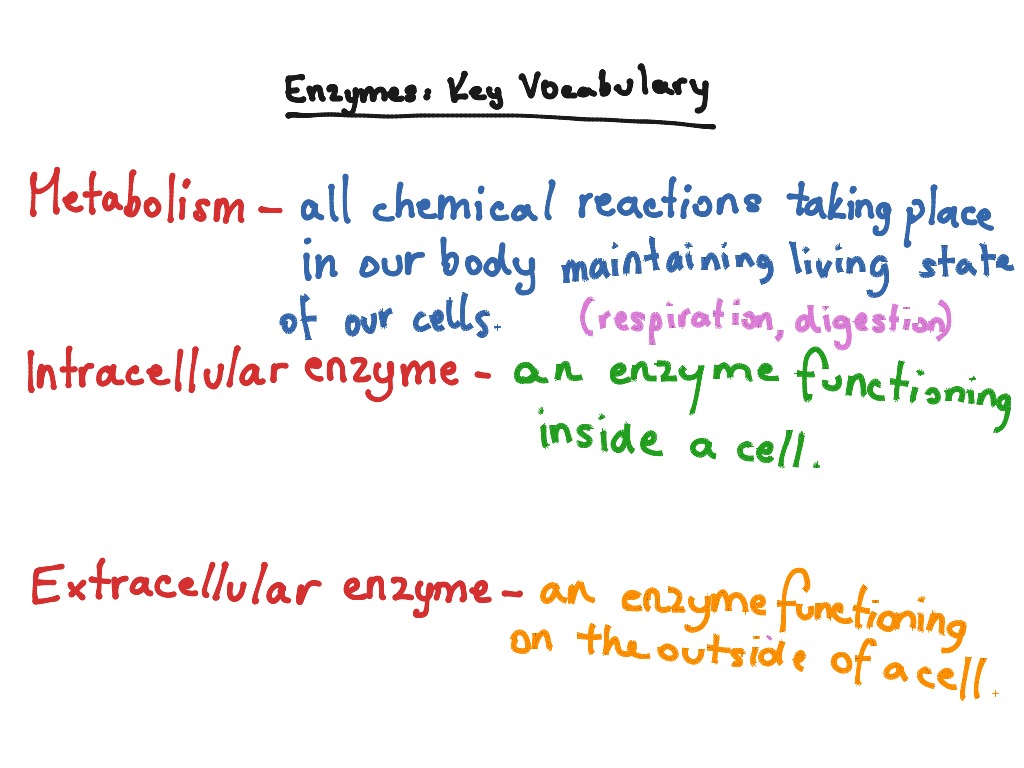 Enzymes: Key Vocabulary
Metabolism - all chemical reactions taking place
in our body maintaining living state
of our cells. (respiration, digestion)
Intracellular enzyme - an enzyme functioning
inside a cell.
Extracellular enzyme - an enzyme functioning
on the outside of a cell.